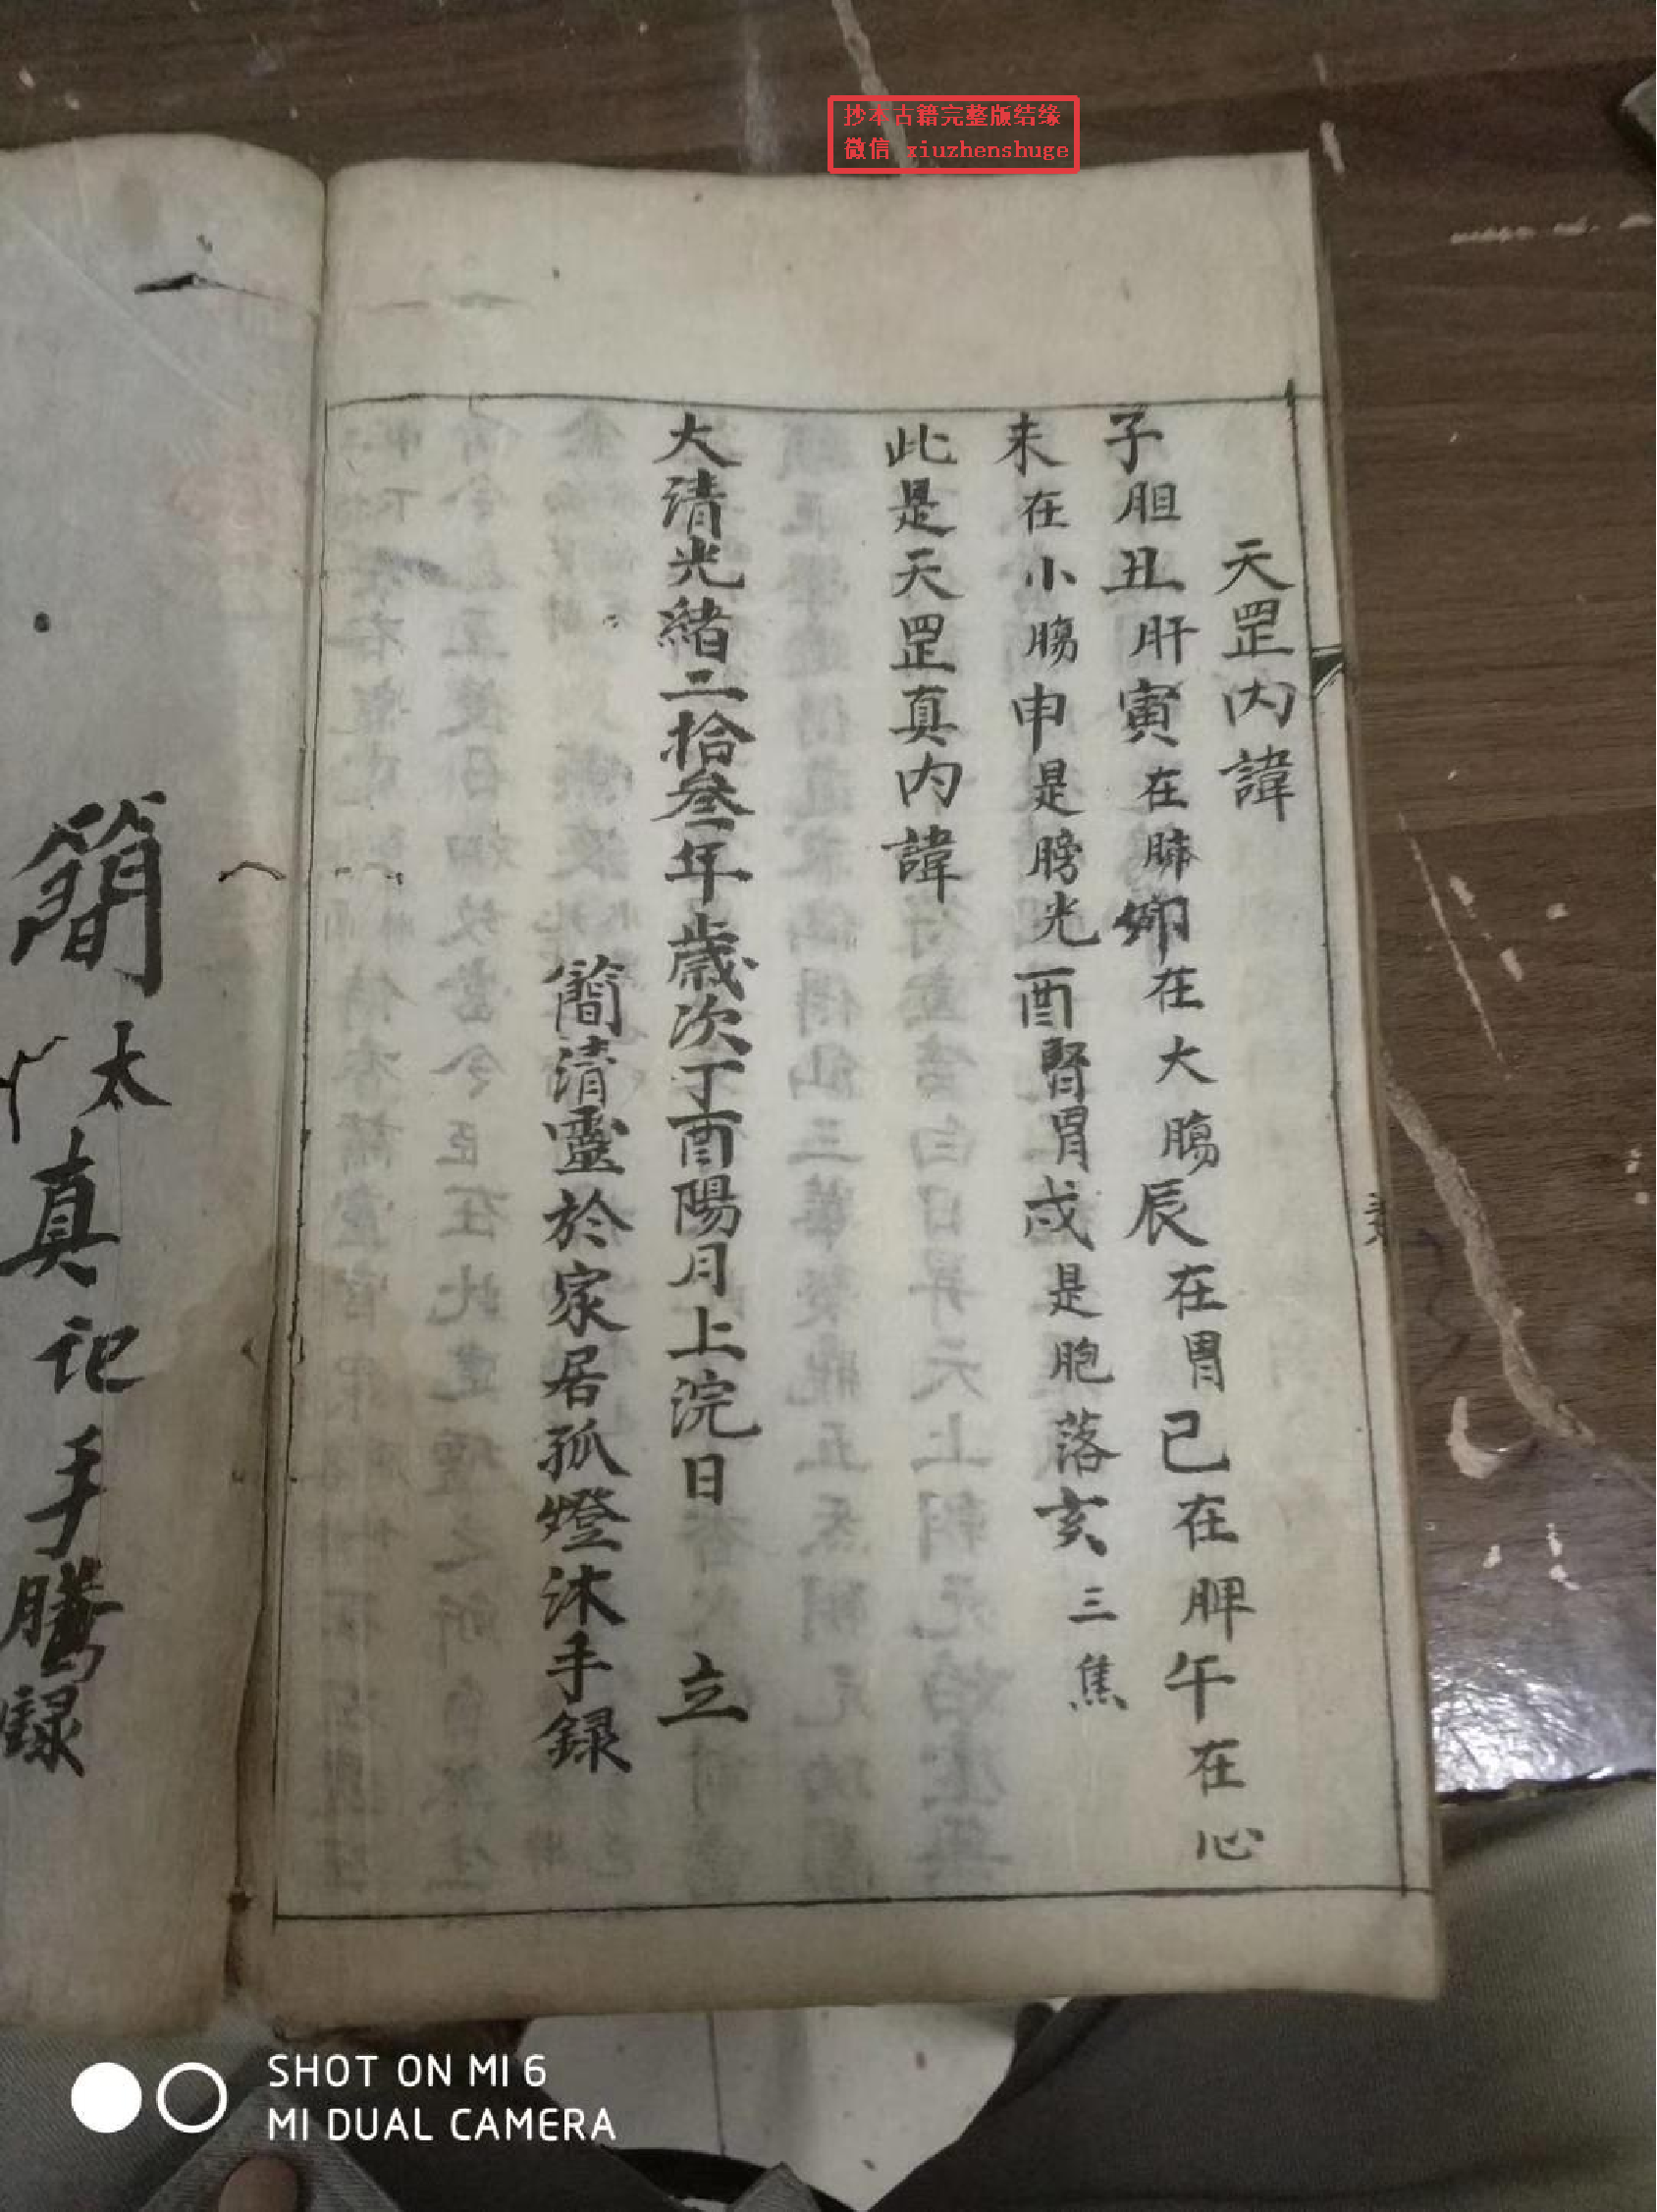 抄本古籍完整版结缘
微信 xiuzhenshuge
天罡内諱
子胆丑肝寅在肺卯在大腸辰在胃己在脾午在心
未在小腸申是膀光酉腎胃戌是胞落亥三焦
此是天罡真内諱
大清光緒二拾叁年歲次丁酉陽月上浣日 立
簡清靈於家居孤燈沐手録
簡太真記手騰録
SHOT ON MI 6
MI DUAL CAMERA